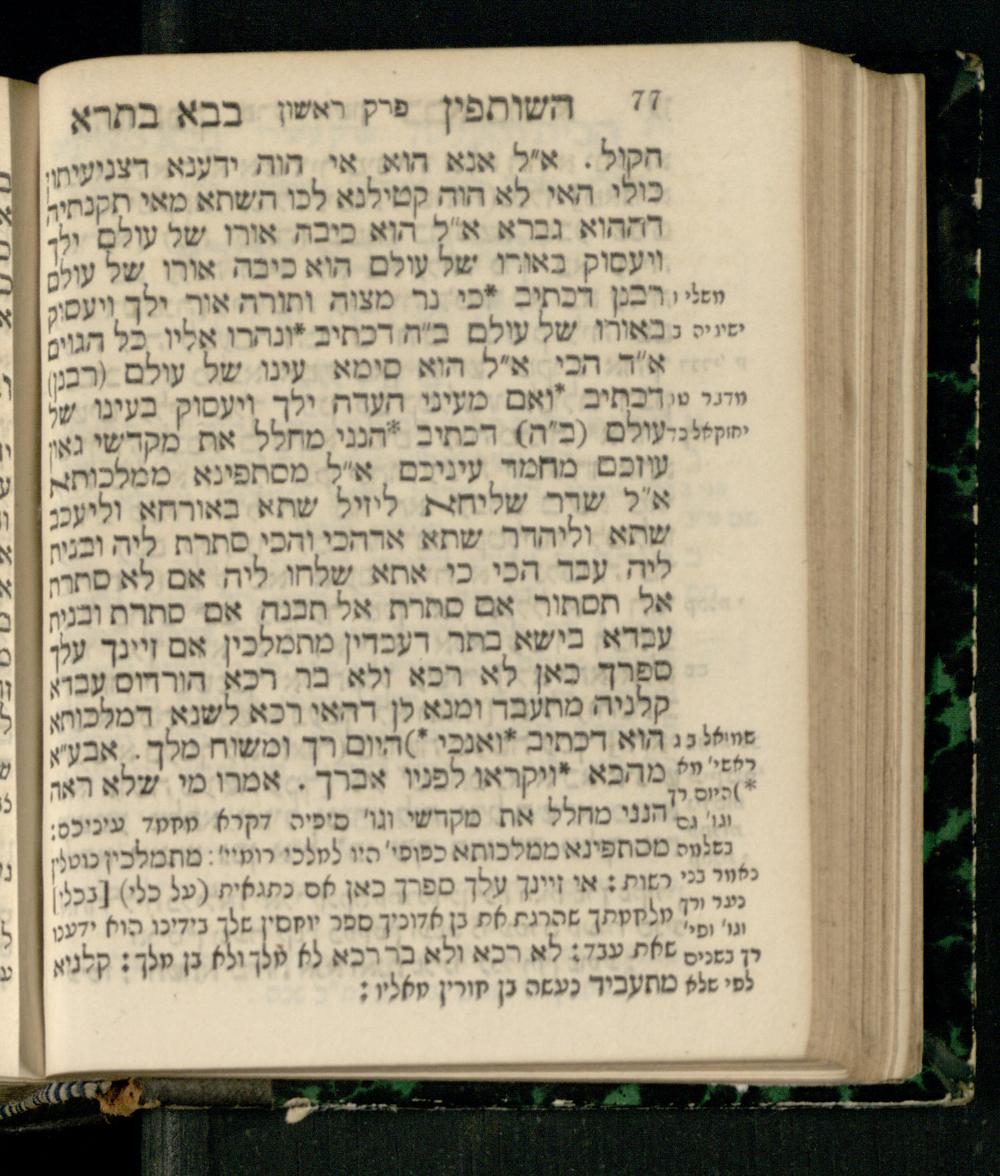 77 השותפין פרק ראשון בבא בתרא
הקול. א״ל אנא הוא אי הוה ידענא דצניעיתון
כולי האי לא הוה קטילנא לכו השתא מאי תקנתיה
דההוא גברא א״ל הוא כיבה אורו של עולם ילך
ויעסוק באורו של עולם הוא כיבה אורו של עולם
משלי ו רבנן דכתיב *כי נר מצוה ותורה אור ילך ויעסוק
ישעיה ב באורו של עולם ב״ה דכתיב *ונהרו אליו כל הגוים
א״ד הכי א״ל הוא סימא עינו של עולם (רבנן)
מדבר טו דכתיב *ואם מעיני העדה ילך ויעסוק בעינו של
יחזקאל כד עולם (ב״ה) דכתיב *הנני מחלל את מקדשי גאון
עוזכם מחמד עיניכם א״ל מסתפינא ממלכותא
א״ל שדר שליחא ליזיל שתא באורחא וליעכב
שתא וליהדר שתא אדהכי והכי סתרת ליה ובנית
ליה עבד הכי כי אתא שלחו ליה אם לא סתרת
אל תסתור אם סתרת אל תבנה אם סתרת ובנית
עבדא בישא בתר דעבדין מתמלכין אם זיינך עלך
ספרך כאן לא רכא ולא בר רכא הורדוס עבדא
קלניה מתעבד ומנא לן דהאי רכא לשנא דמלכותא
שמואל ב ג הוא דכתיב *ואנכי *)היום רך ומשוח מלך. אבע״א
ראשי׳ מא מהכא *ויקראו לפניו אברך. אמרו מי שלא ראה
*)היום רך
וגו׳ גם הנני מחלל את מקדשי וגו׳ סיפיה דקרא מחמד עיניכם:
בשלמה מסתפינא ממלכותא כפופי׳ היו למלכי רומיי׳: מתמלכין נוטלין
נאמר בני רשות: אי זיינך עלך ספרך כאן אם נתגאית (על כלי) [בכלי]
נער ורך מלחמתך שהרגת את בן אדוניך ספר יוחסין שלך בידינו הוא ידענו
וגו׳ ופי׳
רך בשנים שאת עבד: לא רכא ולא בר רכא לא מלך ולא בן מלך: קלניא
לפי שלא מתעביד נעשה בן חורין מאליו: